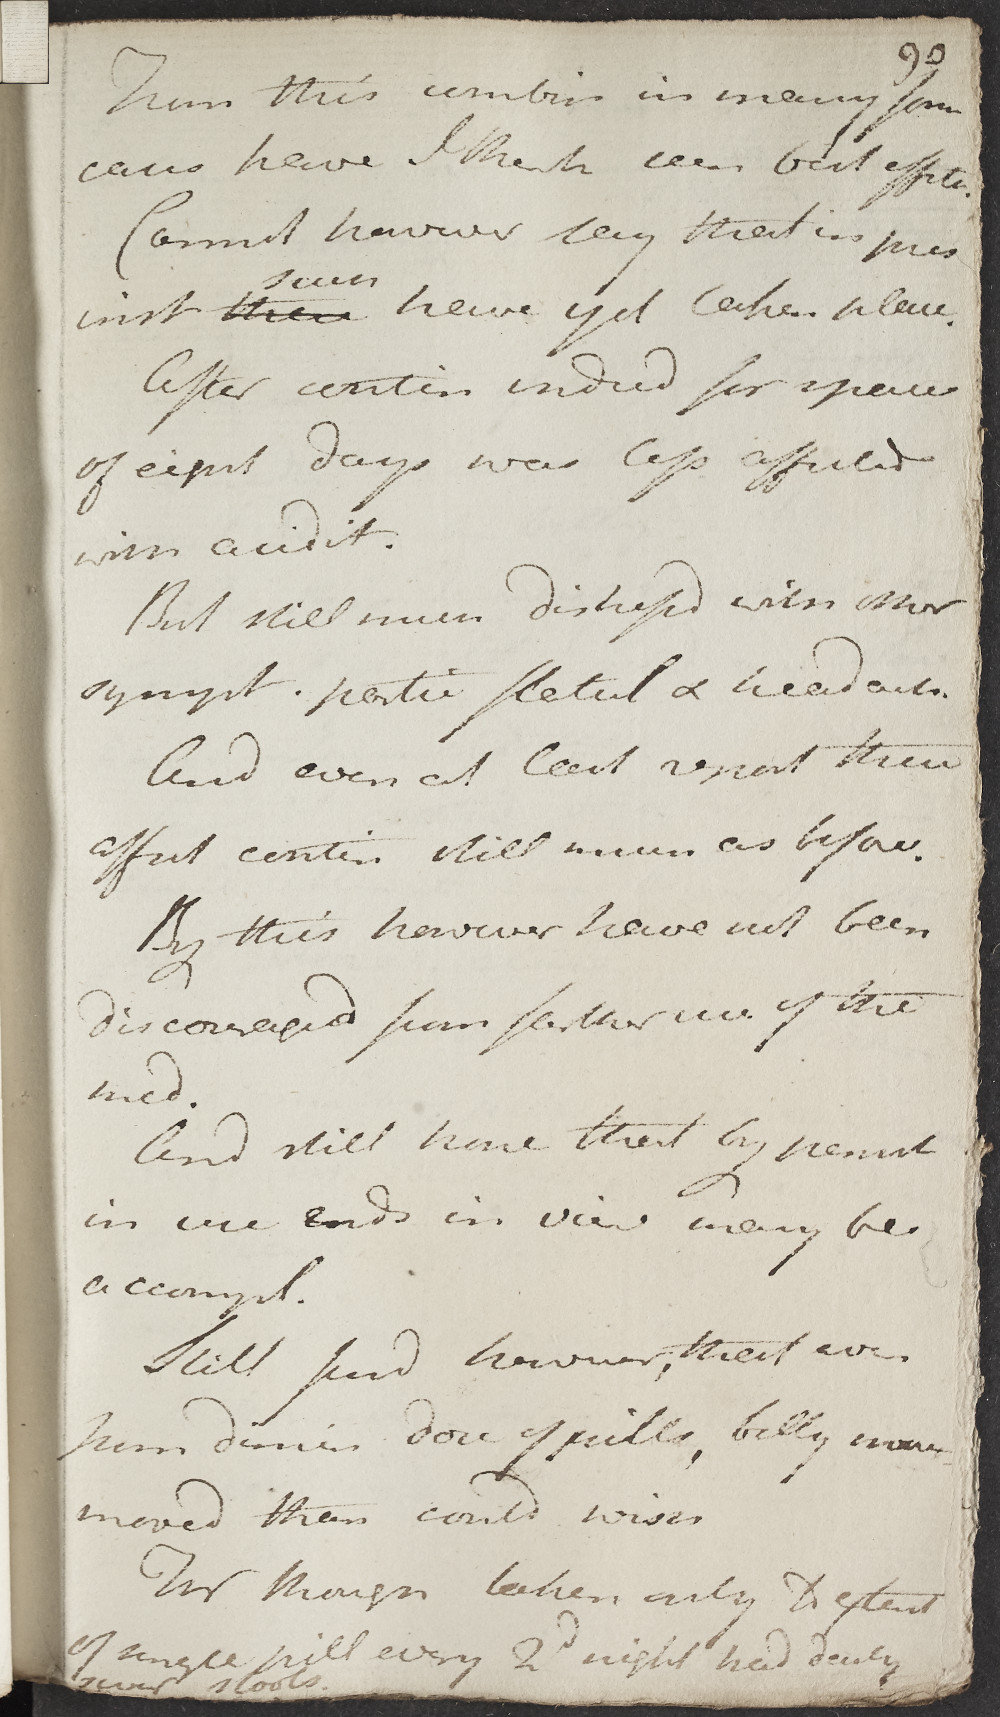 90
From this combin in many form
cases have I think seen best effects.
Cannot however say that in pres
inst such
have yet taken place.
After contin indeed for space
of eight days was less affected
with acidit.
But still much distressd with other
sympt. partic flatul & headach.
And even at last report these
affect contin still much as before.
By this however have not been
discouraged from farther use of the
med.
And still hope that by persist
in use ends in view may be
accompl.
Still find however, that even
from dimin dose of pills, belly more
moved than could wish
For though taken only to extent
of single pill every 2d night had daily
sever stools.